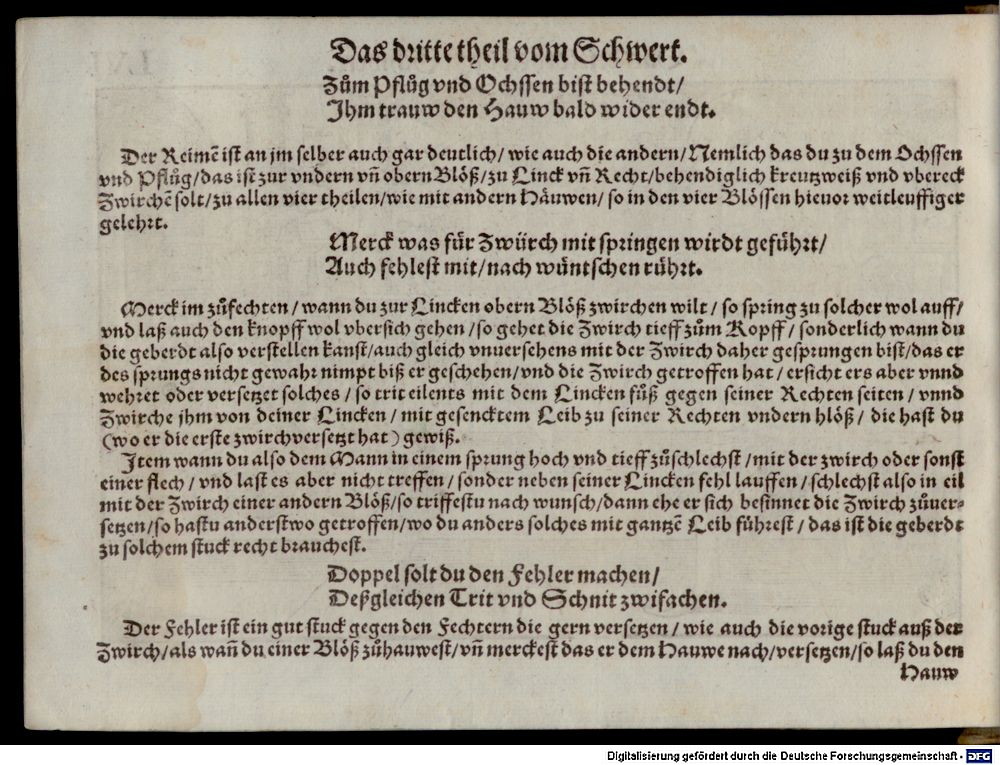 Das dritte theil vom Schwert.
Zům Pflůg vnd Ochssen bist behendt/
Ihm trauw den Hauw bald wider endt.
Der Reimẽ ist an jm selber auch gar deutlich/ wie auch die andern/ Nemlich das du zu dem Ochssen
vnd Pflůg/ das ist zur vndern vñ obern Blöß/ zu Linck vñ Recht/ behendiglich kreutzweiß vnd vbereck
Zwirchẽ solt/ zu allen vier theilen/ wie mit andern Häuwen/ so in den vier Blössen hieuor weitleuffiger
gelehrt.
Merck was für Zwürch mit springen wirdt geführt/
Auch fehlest mit/ nach wüntschen rührt.
Merck im zůfechten/ wann du zur Lincken obern Blöß zwirchen wilt/ so spring zu solcher wol auff/
vnd laß auch den knopff wol vbersich gehen/ so gehet die Zwirch tieff zům Kopff/ sonderlich wann du
die geberdt also verstellen kanst/ auch gleich vnuersehens mit der Zwirch daher gesprungen bist/ das er
des sprungs nicht gewahr nimpt biß er geschehen/ vnd die Zwirch getroffen hat/ ersicht ers aber vnnd
wehret oder versetzet solches/ so trit eilents mit dem Lincken fůß gegen seiner Rechten seiten/ vnnd
Zwirche jhm von deiner Lincken/ mit gesencktem Leib zu seiner Rechten vndern hlöß/ die hast du
(wo er die erste zwirch versetzt hat) gewiß.
Item wann du also dem Mann in einem sprung hoch vnd tieff zůschlechst/ mit der zwirch oder sonst
einer flech/ vnd last es aber nicht treffen/ sonder neben seiner Lincken fehl lauffen/ schlechst also in eil
mit der Zwirch einer andern Blöß/ so triffestu nach wunsch/ dann ehe er sich besinnet die Zwirch zůuer-
setzen/ so hastu anderstwo getroffen/ wo du anders solches mit gantzẽ Leib führest/ das ist die geberdt
zu solchem stuck recht brauchest.
Doppel solt du den Fehler machen/
Deßgleichen Trit vnd Schnit zwifachen.
Der Fehler ist ein gut stuck gegen den Fechtern die gern versetzen/ wie auch die vorige stuck auß der
Zwirch/ als wañ du einer Blöß zůhauwest/ vñ merckest das er dem Hauwe nach/ versetzen/ so laß du den
Hauw
Digitalisierung gefördert durch die Deutsche Forschungsgemeinschaft - DFG